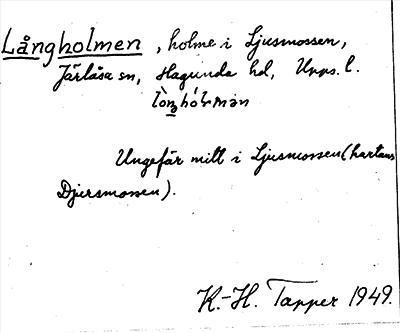 Långholmen, holme i Ljusmossen,
Järlåsa sn, Hagunda hd, Upps. l.
Ungefär mitt i Ljusmossen (kartans
Djursmossen).
K.-H. Tapper 1949.